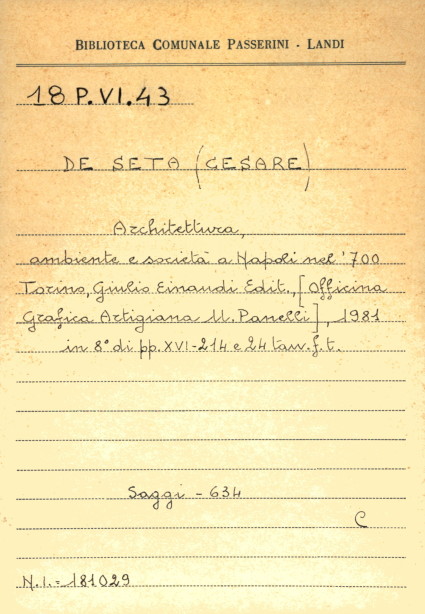 BIBLIOTECA COMUNALE PASSERINI - LANDI
18 P.VI.43
DE SETA (CESARE)
Architettura,
ambiente e società a Napoli nel '700
Torino, Giulio Einaudi Edit., [Officina
Grafica Artigiana U. Panelli], 1981
in 8° di pp. XVI-214 e 24 tavv.f.t.
Saggi - 634
C
N.I.= 181029